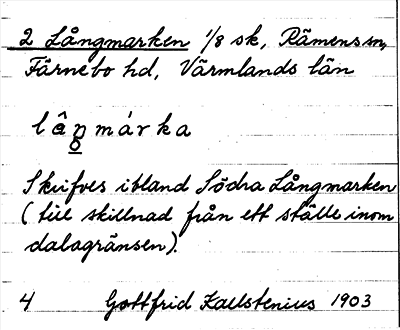 2 Långmarken 1/8 sk, Rämens sn,
Färnebo hd, Värmlands län
lâŋmárka
Skrifves ibland Södra Långmarken
(till skillnad från ett ställe inom
dalagränsen).
4 Gottfrid Kallstenius 1903